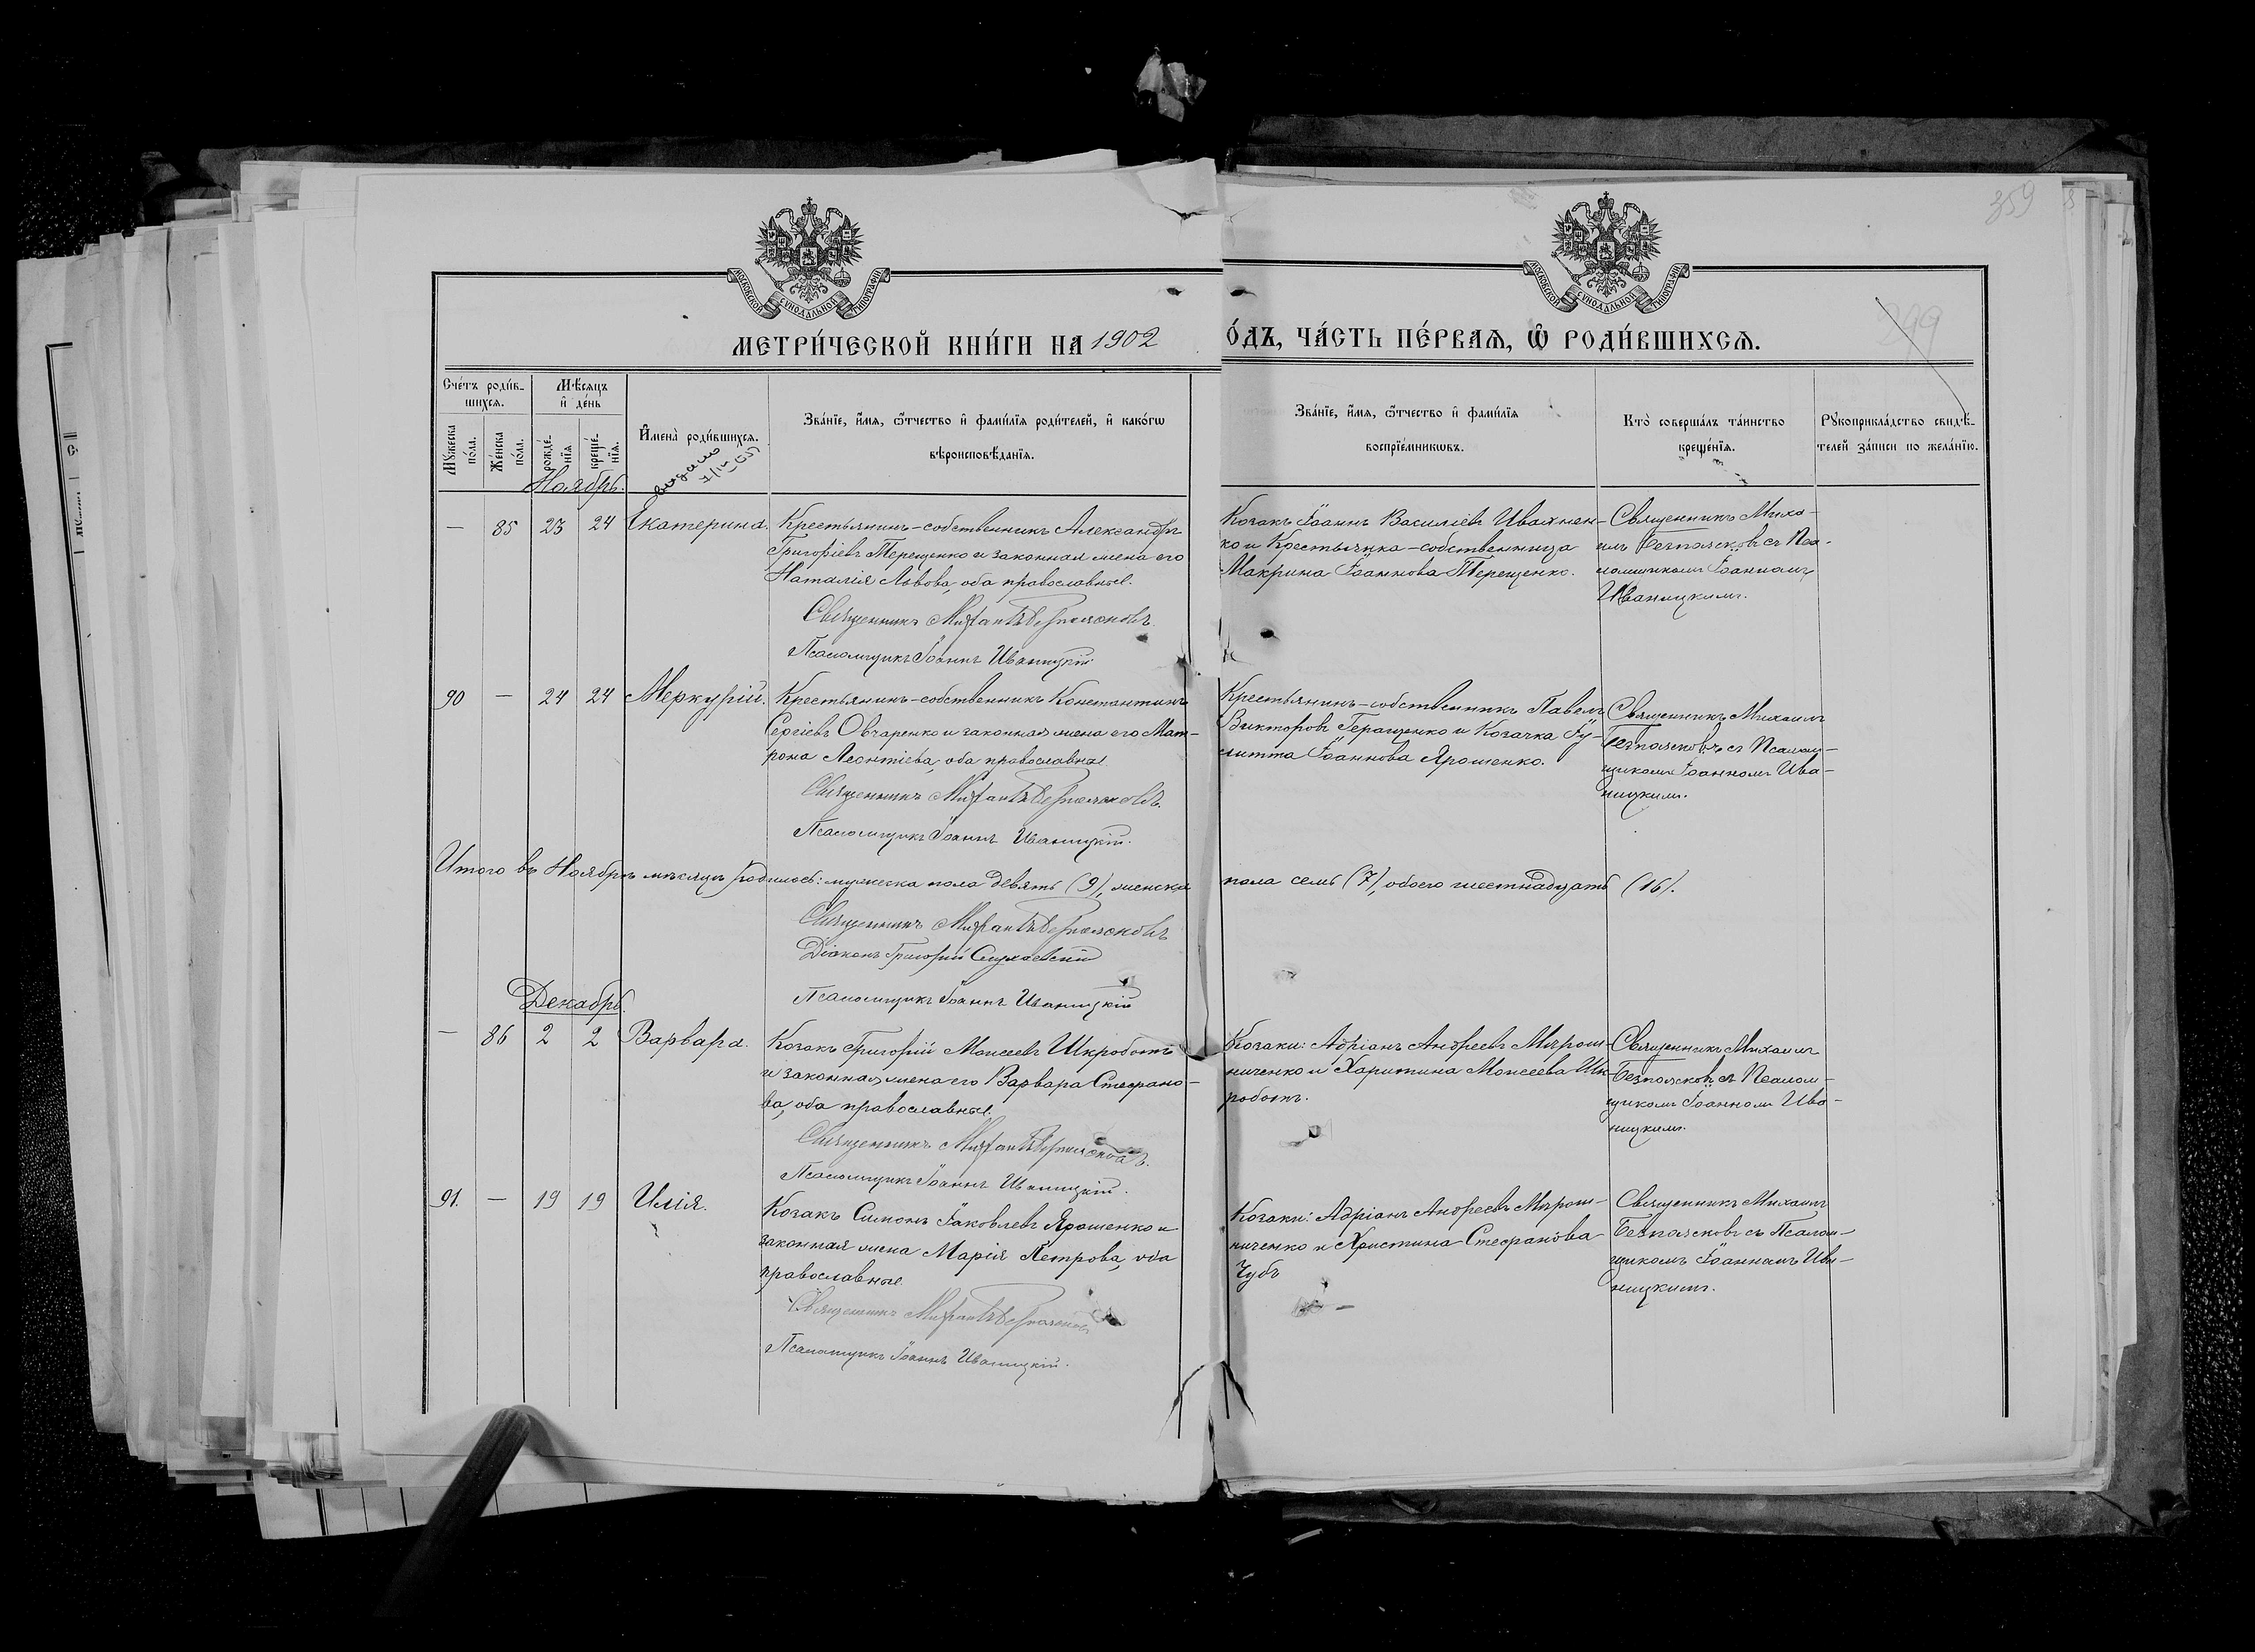 359
МОСКОВСКОЙ СѴНОДАЛЬНОЙ ТИПОГРАФІИ
МОСКОВСКОЙ СѴНОДАЛЬНОЙ ТИПОГРАФІИ
299
МЕТРИ́ЧЕСКОЙ КНИ́ГИ НА 1902
О́ДЪ, ЧА́СТЬ ПЕ́РВАѦ, Ѡ҆ РОДИ́ВШИХСѦ.
Сче́тъ роди́в-
шихсѧ.
Мꙋ́жеска по́ла.
Же́нска по́ла.
Мѣ́сѧцъ
и҆ де́нь
рожде́-
нїѧ
креще́-
нїѧ.
И҆мена̀ роди́вшихсѧ.
Зва́нїе, и҆́мѧ, ѻ҆́тчество и҆ фамі́лїѧ роди́телей, и҆ како́гѡ
вѣроисповѣ́данїѧ.
Зва́нїе, и҆́мѧ, ѻ҆́тчество и҆ фамі́лїѧ
воспрїе́мникѡвъ.
Кто̀ соверша́лъ та́инство
креще́нїѧ.
Рꙋкоприкла́дство свидѣ́-
телей за́писи по жела́нїю.
Ноябрь.
выдано
— 85 23 24 Екатерина.
Крестьянинъ-собственникъ Александръ
Григоріевъ Терещенко и законная жена его
Наталія Львова, оба православные.
Священникъ Михаилъ Безпоясковъ
Псаломщикъ Іоаннъ Иваницкій.
Козакъ Іоаннъ Василіевъ Ивахнен-
ко и Крестьянка-собственница
Макрина Іоаннова Терещенко.
Священникъ Миха-
илъ Безпоясковъ съ Пса-
ломщикомъ Іоанномъ
Иваницкимъ.
90 — 24 24 Меркурій.
Крестьянинъ-собственникъ Константинъ
Сергіевъ Овчаренко и законная жена его Мат-
рона Леонтіева, оба православные.
Священникъ Михаилъ Безпоясковъ.
Псаломщикъ Іоаннъ Иваницкій.
Крестьянинъ-собственникъ Павелъ
Викторовъ Геращенко и Козачка Іу-
литта Іоаннова Ярошенко.
Священникъ Михаилъ
Безпоясковъ съ Псалом-
щикомъ Іоанномъ Ива-
ницкимъ.
Итого въ Ноябрѣ мѣсяцѣ родилось: мужеска пола девять (9), женска пола семь (7), обоего шестнадцать (16).
Священникъ Михаилъ Безпоясковъ
Діаконъ Григорій
Псаломщикъ Іоаннъ Иваницкій
Декабрь.
— 86 2 2 Варвара.
Козакъ Григорій Моисеевъ Шкроботъ
и законная жена его Варвара Стефано-
ва, оба православные.
Священникъ Михаилъ Безпоясковъ.
Псаломщикъ Іоаннъ Иваницкій.
Козаки: Адріанъ Андреевъ Мирош-
ниченко и Харитина Моисеева Шк-
роботъ.
Священникъ Михаилъ
Безпоясковъ съ Псалом-
щикомъ Іоанномъ Ива-
ницкимъ.
91. — 19 19 Илія.
Козакъ Симонъ Іаковлевъ Ярошенко и
законная жена Марія Петрова, оба
православные.
Священникъ Михаилъ Безпоясковъ
Псаломщикъ Іоаннъ Иваницкій.
Козаки: Адріанъ Андреевъ Мирош-
ниченко и Христина Стефанова
Чубъ
Священникъ Михаилъ
Безпоясковъ съ Псалом-
щикомъ Іоанномъ Ива-
ницкимъ.